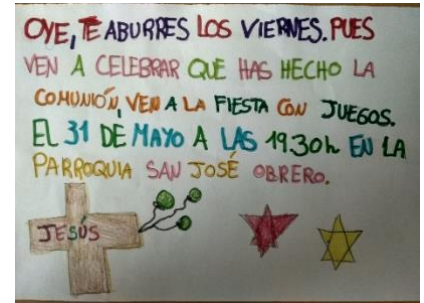 OYE, TE ABURRES LOS VIERNES. PUES
VEN A CELEBRAR QUE HAS HECHO LA
COMUNIÓN, VEN A LA FIESTA CON JUEGOS.
EL 31 DE MAYO A LAS 19.30h EN LA
PARROQUIA SAN JOSÉ OBRERO.
JESÚS